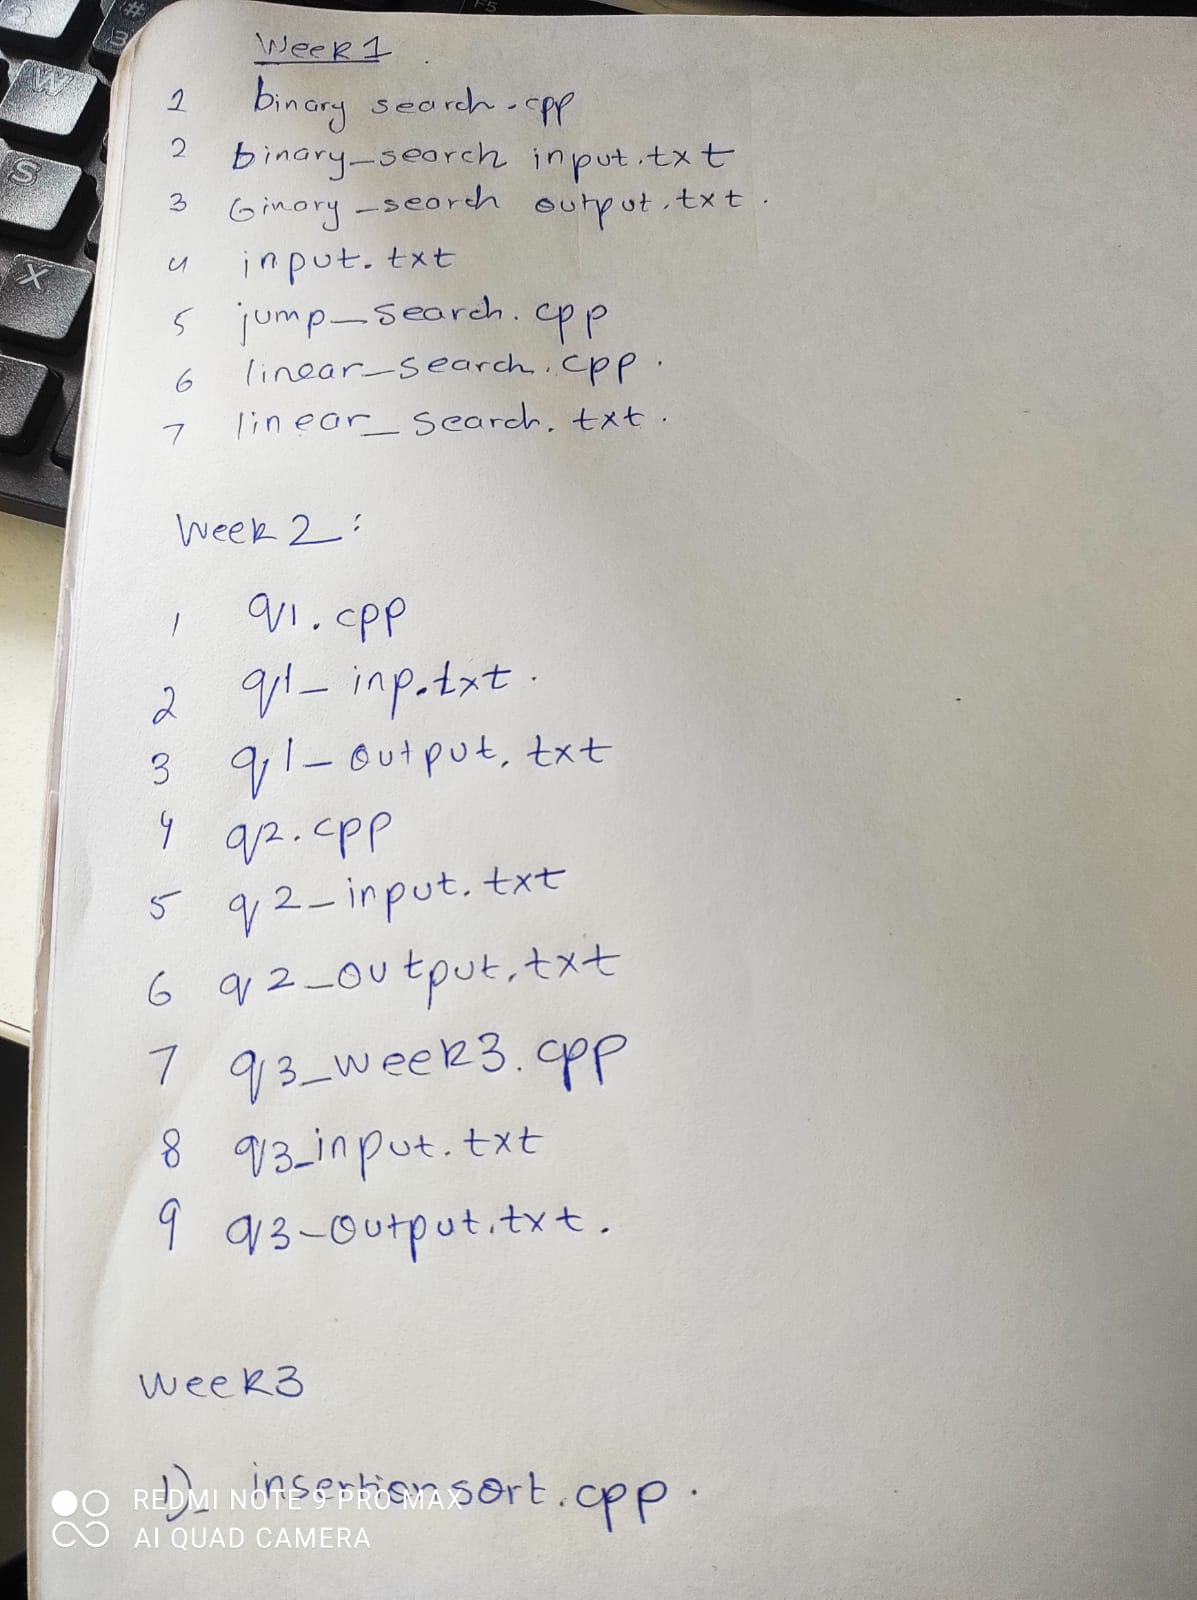 Week 1
1 binary search.cpp
2 binary_search input.txt
3 binary_search output.txt.
4 input.txt
5 jump_search.cpp
6 linear_search.cpp.
7 linear_search.txt.
Week 2:
1 q1.cpp
2 q1_inp.txt.
3 q1_output.txt
4 q2.cpp
5 q2_input.txt
6 q2_output.txt
7 q3_week3.cpp
8 q3_input.txt
9 q3_output.txt.
Week3
1) insertionsort.cpp.
REDMI NOTE 9 PRO MAX
AI QUAD CAMERA
W
S
X
#
3
F5